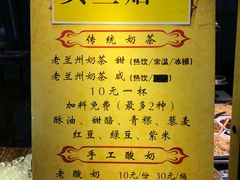 传统奶茶
老兰州奶茶 甜（热饮/常温/冰镇）
老兰州奶茶 咸（热饮/
10元一杯
加料免费（最多2种）
酥油、甜醅、青稞、藜麦
红豆、绿豆、紫米
手工酸奶
老酸奶 10元/份 30元/桶